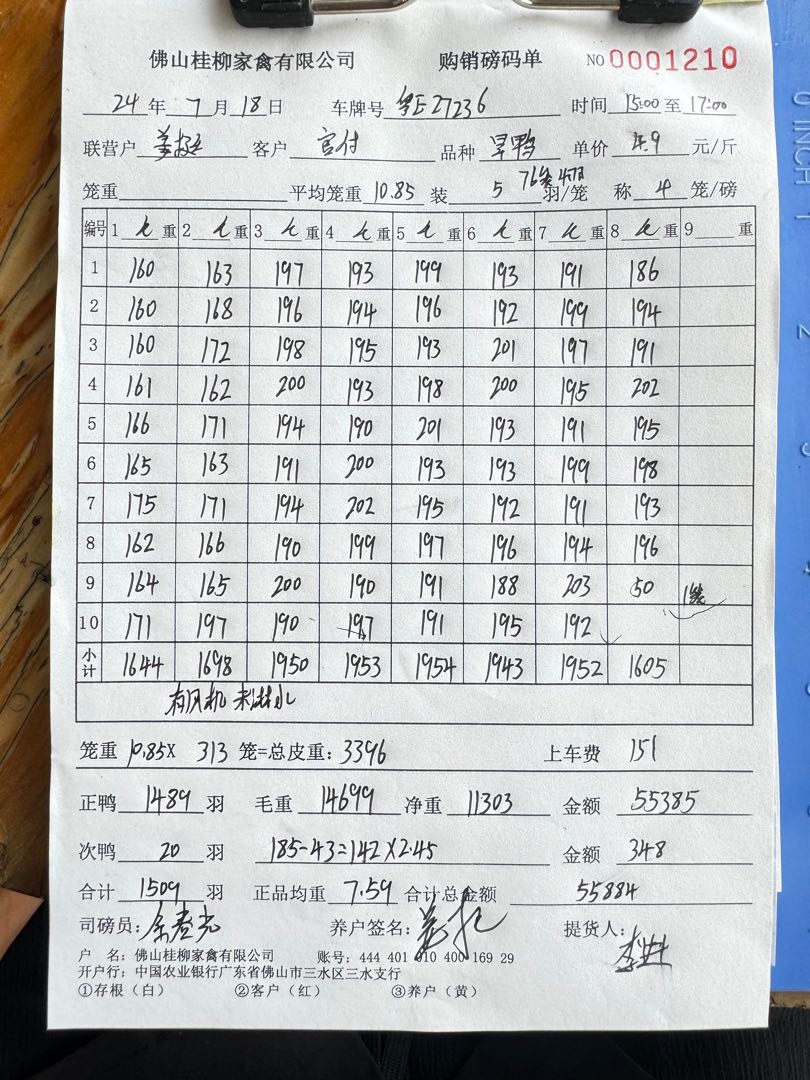 佛山桂柳家禽有限公司 购销磅码单 NO 0001210
24 年 7 月 18 日 车牌号 粤E27236 时间 15:00 至 17:00
联营户 客户 官付 品种 旱鸭 单价 4.9 元/斤
笼重 平均笼重 10.85 装 5 羽/笼 称 4 笼/磅
编号 1 重 2 重 3 重 4 重 5 重 6 重 7 重 8 重 9 重
1 160 163 197 193 199 193 191 186
2 160 168 196 194 196 192 199 194
3 160 172 198 195 193 201 197 191
4 161 162 200 193 198 200 195 202
5 166 171 194 190 201 193 191 195
6 165 163 191 200 193 193 199 198
7 175 171 194 202 195 192 191 193
8 162 166 190 199 197 196 194 196
9 164 165 200 190 191 188 203 50 1笼
10 171 197 190 197 191 195 192
小计 1644 1698 1950 1953 1954 1943 1952 1605
有风机 未淋水
笼重 10.85X 313 笼=总皮重: 3396 上车费 151
正鸭 1489 羽 毛重 14699 净重 11303 金额 55385
次鸭 20 羽 185-43=142X2.45 金额 348
合计 1509 羽 正品均重 7.59 合计总金额 55884
司磅员: 养户签名: 提货人:
户 名: 佛山桂柳家禽有限公司 账号: 444 401 010 400 169 29
开户行: 中国农业银行广东省佛山市三水区三水支行
①存根(白) ②客户(红) ③养户(黄)